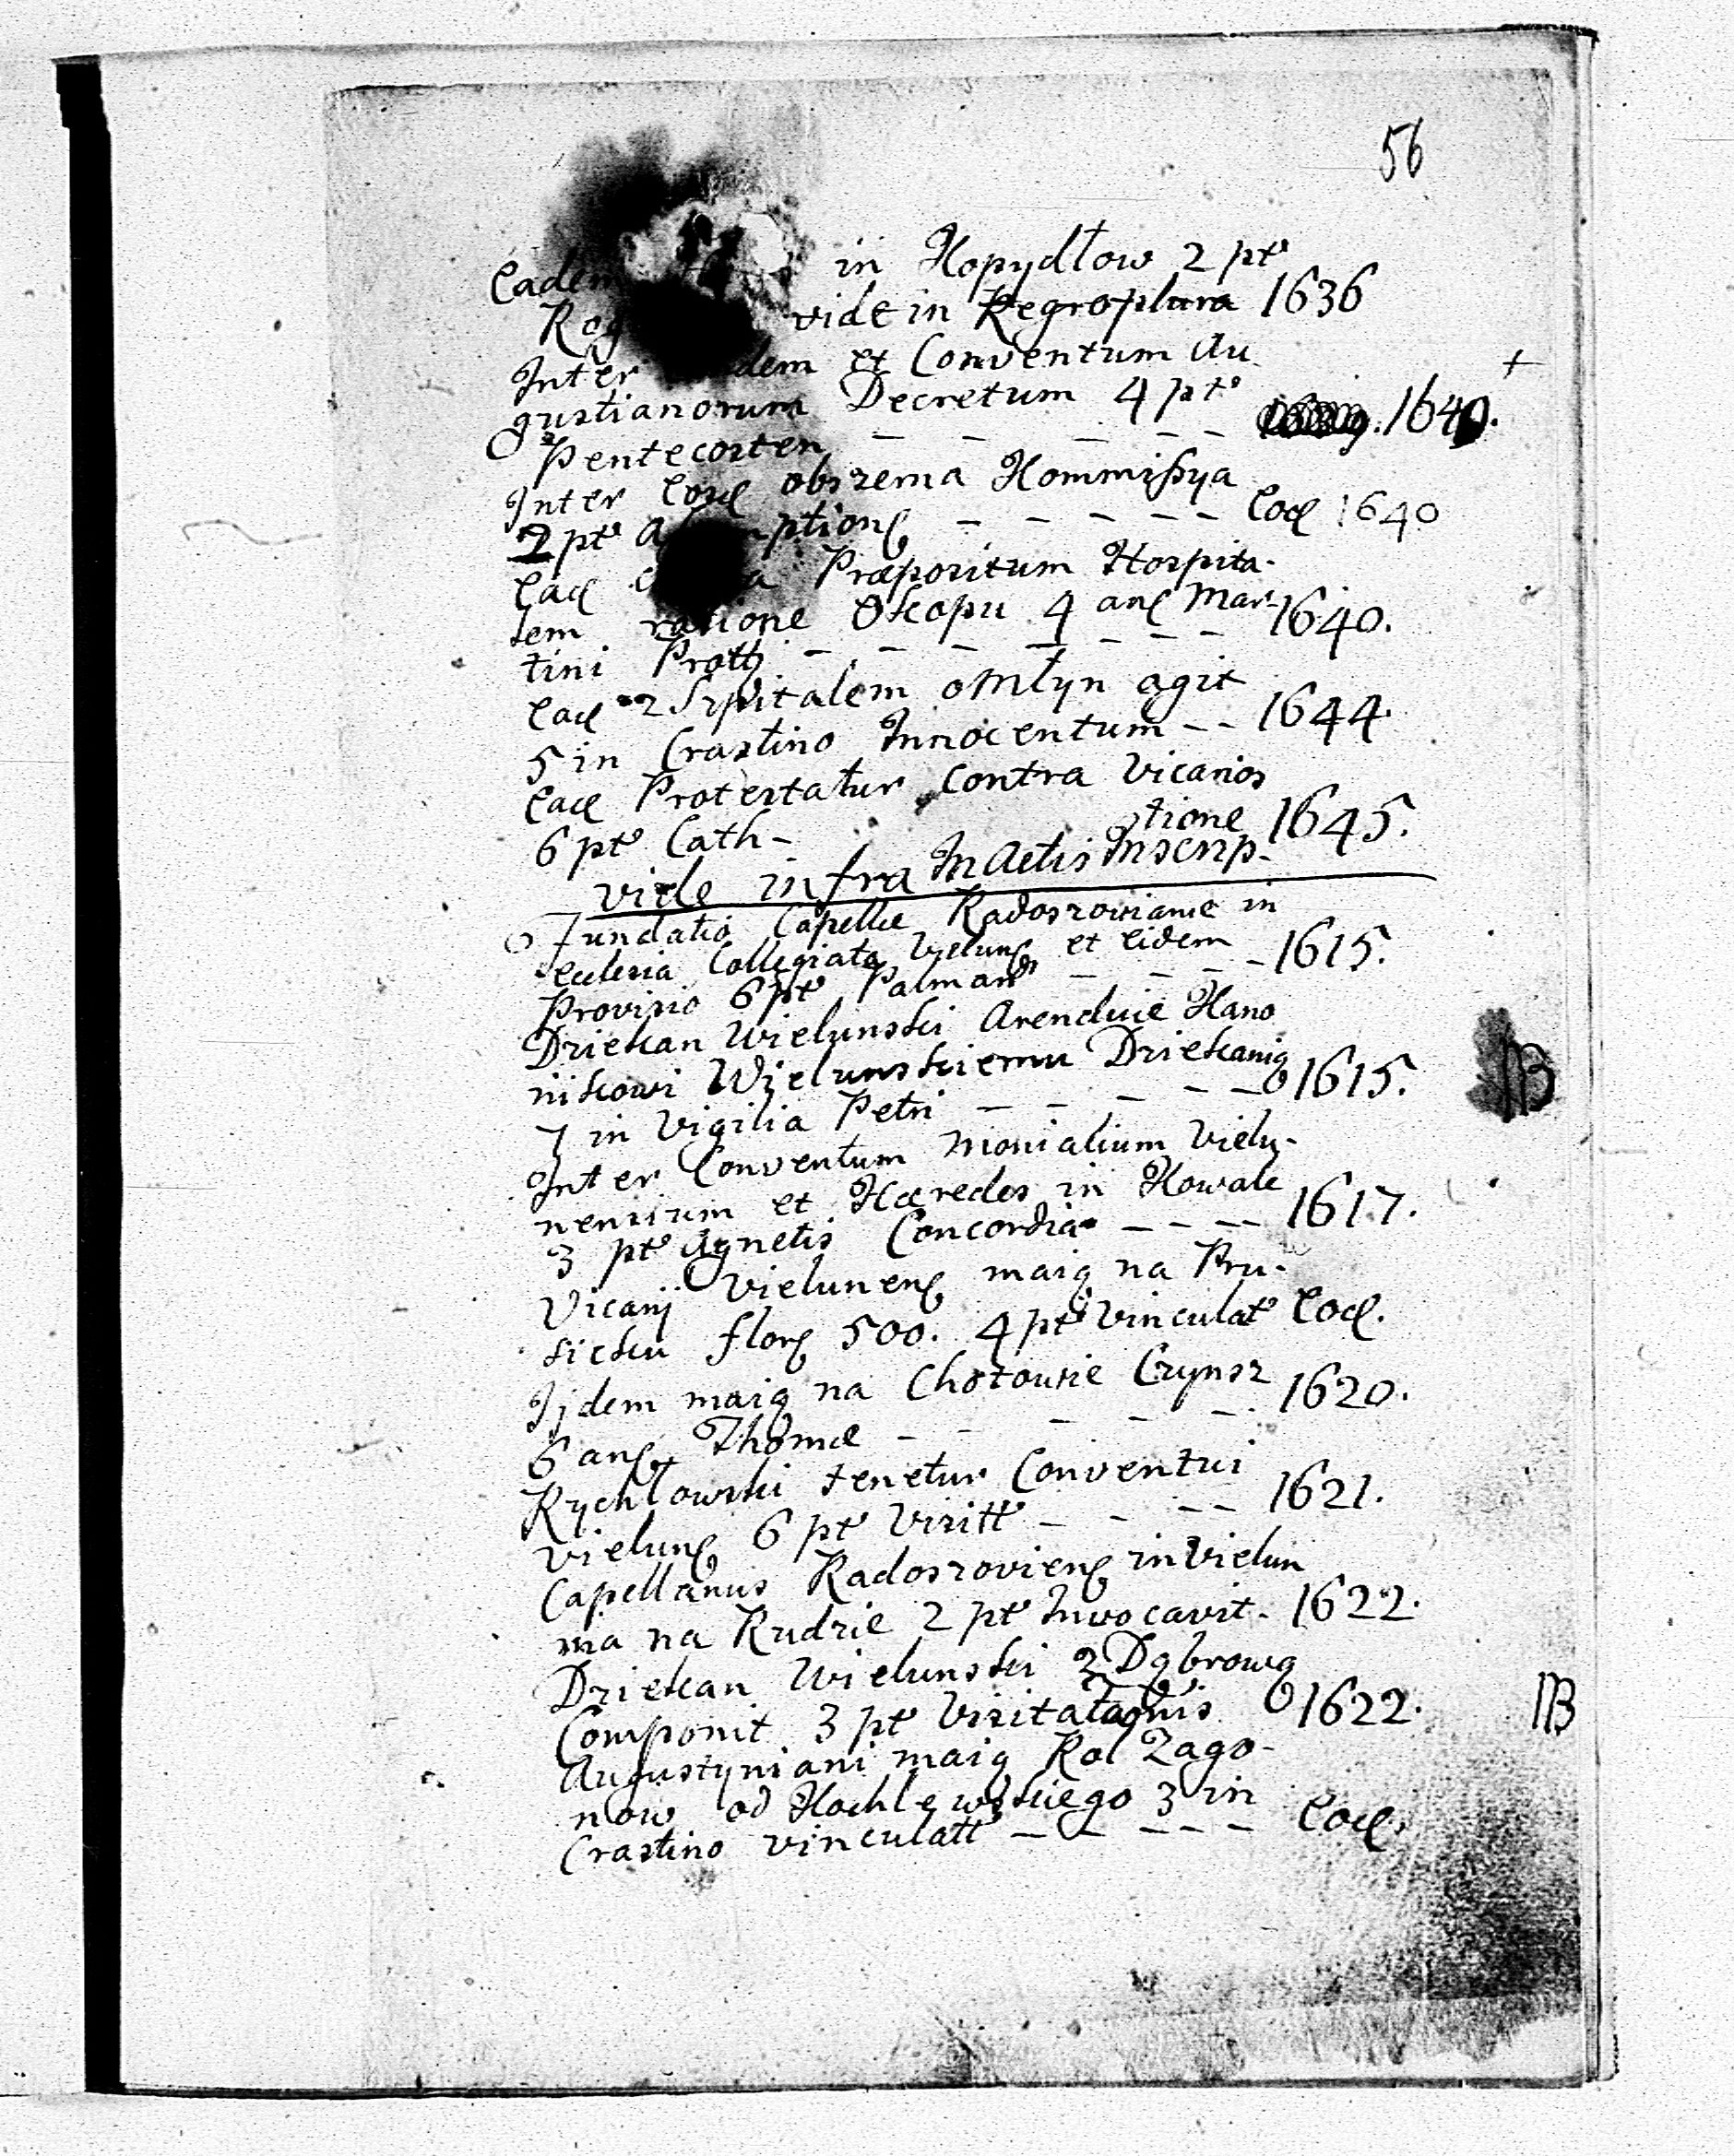 56
Eadem in Kopydłow 2 pt
Rog vide in Regro plura 1636
Inter dem et Conventum Au +
gustianorum Decretum 4 pt
Pentecosten – – – – – 1640.
Inter eosd obszerna Kommissya
2 pt A ptionis – – – – – Eod 1640
Ead a Præpositum Hospita-
lem ratione Okopu 4 ang Mar-
tini Prott – – – – – – 1640.
Ead 2 Szpitalem o Młyn agit
5 in Crastino Innocentum – – 1644.
Ead Protestatur contra Vicarios
6 pt Cath – 1645.
tione
vide infra In Actis Inscrip-
Fundatio Capellæ Radoszowianæ in
Ecclesia Collegiata Vielung et eidem
Provisio 6 pt Palmarum – – – – 1615.
Dziekan Wielunski Arenduie Kano
nikowi Wielunskiemu Dziekanią
7 in Vigilia Petri – – – – – 1615. NB
Inter Conventum Monialium Vielu-
nensium et Hæredes in Kowale
3 pt Agnetis Concordia – – – – 1617.
Vicarij Vielunens maią na Pru-
sicku flor 500. 4 pt Vinculat Eod.
Ijdem maią na Chotowie Czynsz
6 ang Thomæ – – – – – 1620.
Rychłowski tenetur Conventui
Vielung 6 pt Visitt – – – – 1621.
Capellanus Radoszoviens in Vielun
ma na Rudzie 2 pt Invocavit – 1622.
Dziekan Wielunski z Dąbrową
Componit 3 pt Visitationis 1622. NB
Augustyniani maią Rol Zago-
now od Kochlewskiego 3 in
Crastino vinculatt – – – – – Eod.